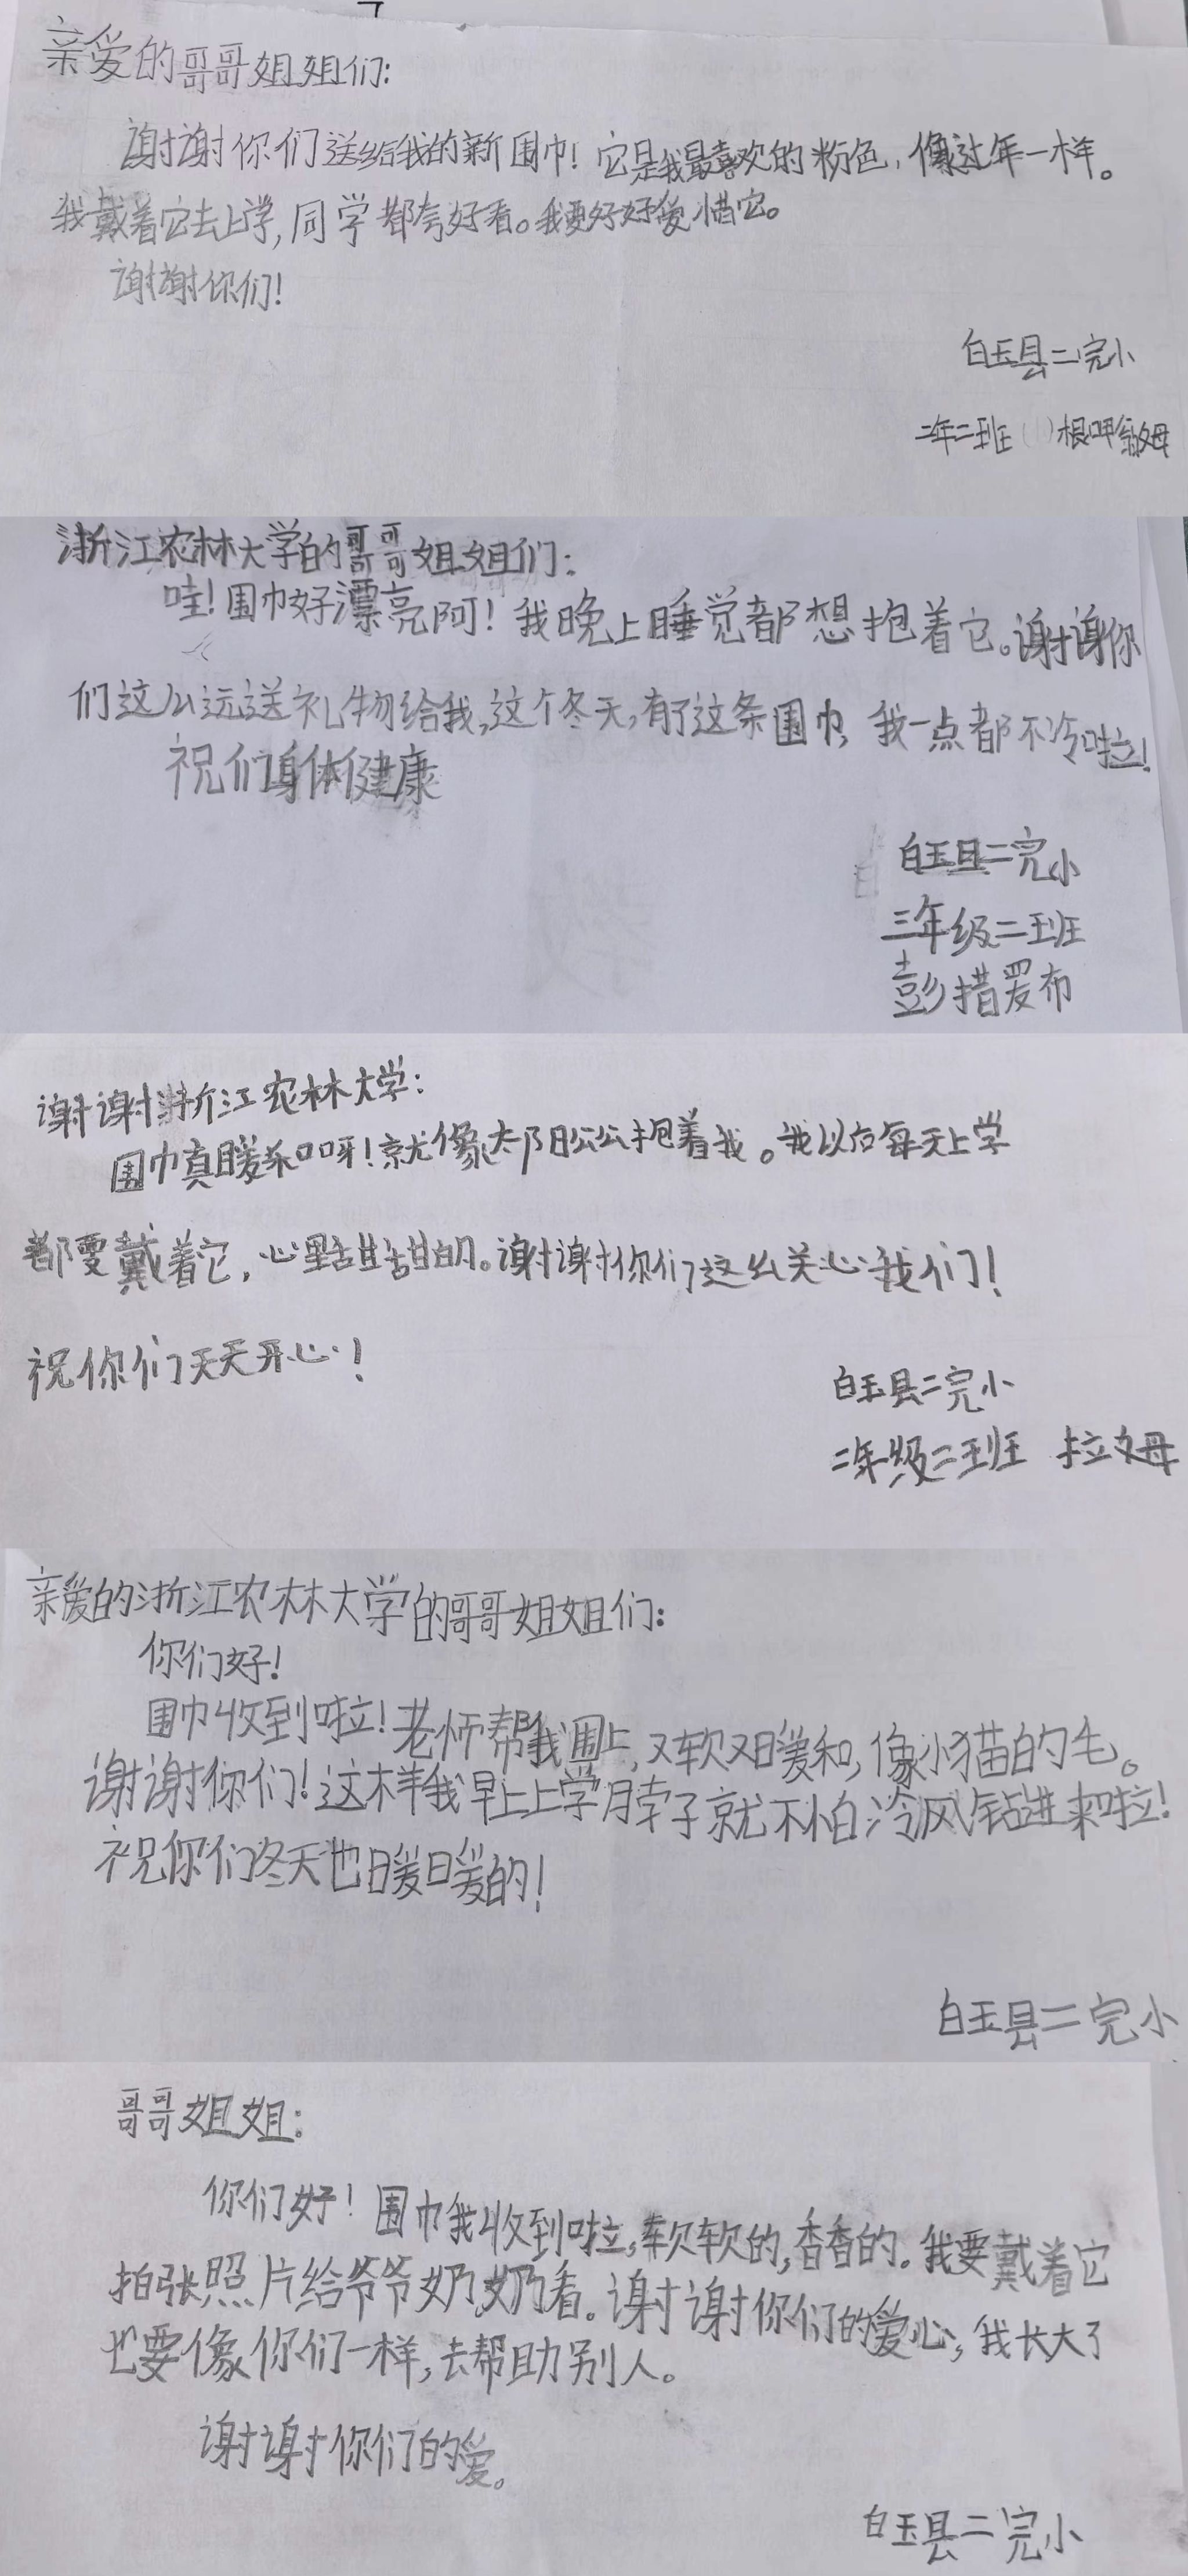 亲爱的哥哥姐姐们:
谢谢你们送给我的新围巾!它是我最喜欢的粉色,像过年一样。
我戴着它去上学,同学都夸好看。我要好好爱惜它。
谢谢你们!
白玉县二完小
二年二班 根呷翁姆
浙江农林大学的哥哥姐姐们:
哇!围巾好漂亮阿!我晚上睡觉都想抱着它。谢谢你
们这么远送礼物给我,这个冬天,有了这条围巾,我一点都不冷啦!
祝们身体健康
白玉县二完小
三年级二班
彭措罗布
谢谢浙江农林大学:
围巾真暖和呀!就像太阳公公抱着我。我以后每天上学
都要戴着它,心里甜甜的。谢谢你们这么关心我们!
祝你们天天开心!
白玉县二完小
二年级二班 拉姆
亲爱的浙江农林大学的哥哥姐姐们:
你们好!
围巾收到啦!老师帮我围上,又软又暖和,像小猫的毛。
谢谢你们!这样我早上上学脖子就不怕冷风钻进来啦!
祝你们冬天也暖暖的!
白玉县二完小
哥哥姐姐:
你们好!围巾我收到啦,软软的,香香的。我要戴着它
拍张照片给爷爷奶奶看。谢谢你们的爱心,我长大了
也要像你们一样,去帮助别人。
谢谢你们的爱。
白玉县二完小